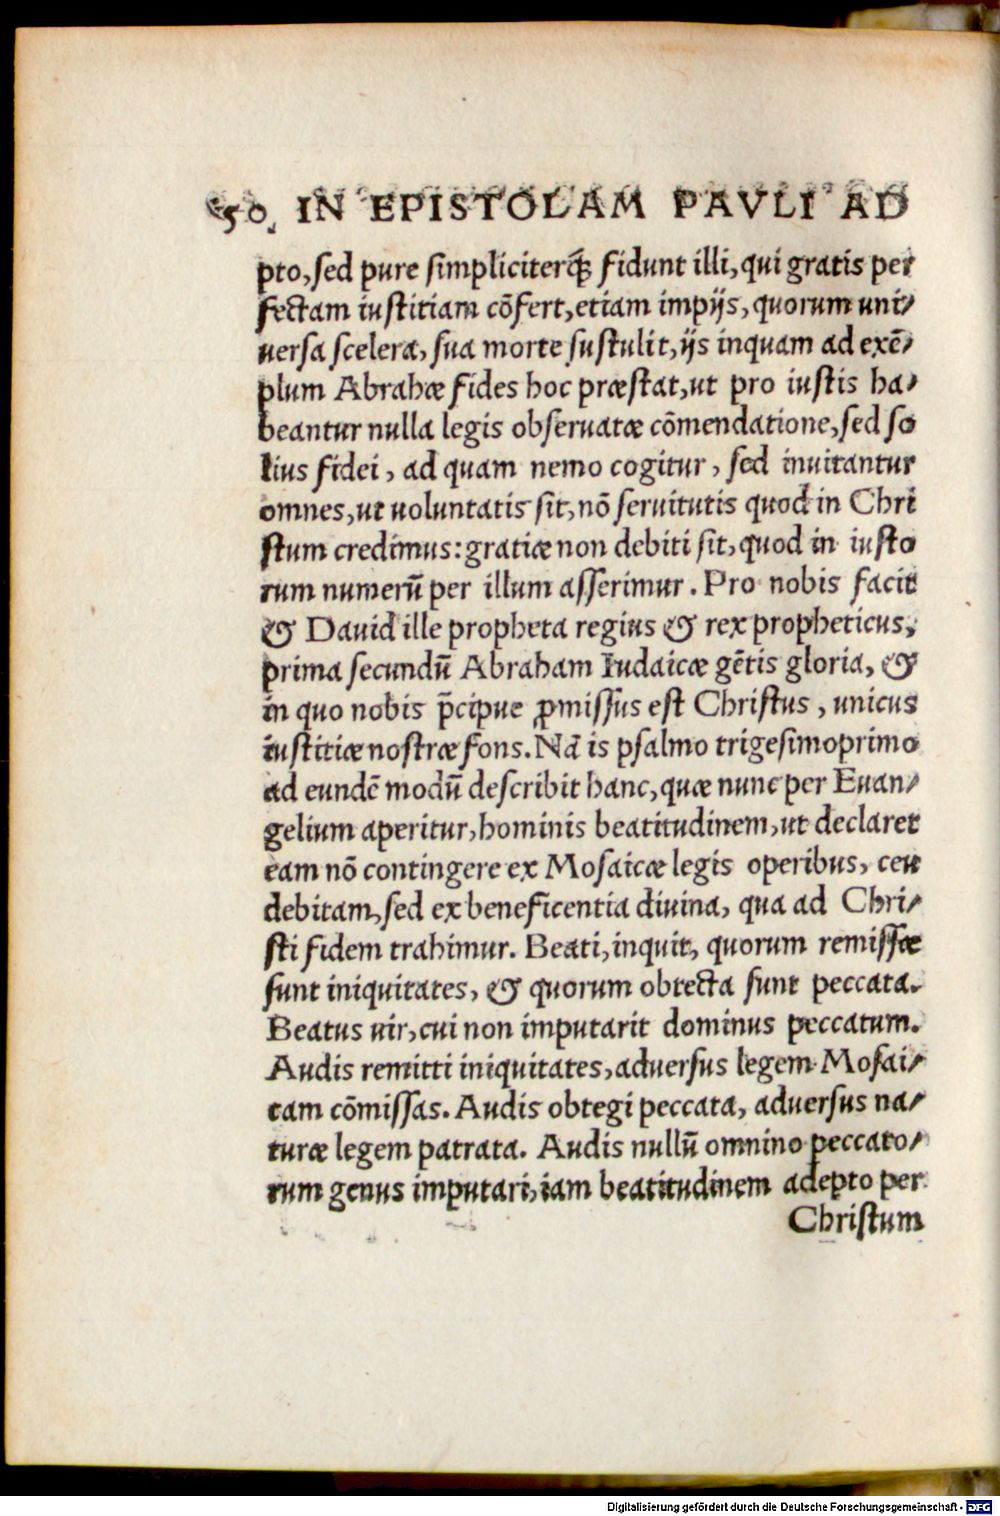 50. IN EPISTOLAM PAVLI AD
pto, sed pure simpliciterq́; fidunt illi, qui gratis per
fectam iustitiam cōfert, etiam impijs, quorum uni-
uersa scelera, sua morte sustulit, ijs inquam ad exē-
plum Abrahæ fides hoc præstat, ut pro iustis ha-
beantur nulla legis obseruatæ cōmendatione, sed so
lius fidei, ad quam nemo cogitur, sed inuitantur
omnes, ut uoluntatis sit, nō seruitutis quod in Chri
stum credimus: gratiæ non debiti sit, quod in iusto
rum numerū per illum asserimur. Pro nobis facit
& Dauid ille propheta regius & rex propheticus,
prima secundū Abraham Iudaicæ gētis gloria, &
in quo nobis p̄cipue ꝓmissus est Christus, unicus
iustitiæ nostræ fons. Nā is psalmo trigesimoprimo
ad eundē modū describit hanc, quæ nunc per Euan-
gelium aperitur, hominis beatitudinem, ut declaret
eam nō contingere ex Mosaicæ legis operibus, ceu
debitam, sed ex beneficentia diuina, qua ad Chri-
sti fidem trahimur. Beati, inquit, quorum remissæ
sunt iniquitates, & quorum obtecta sunt peccata.
Beatus uir, cui non imputarit dominus peccatum.
Audis remitti iniquitates, aduersus legem Mosai-
cam cōmissas. Audis obtegi peccata, aduersus na-
turæ legem patrata. Audis nullū omnino peccato-
rum genus imputari, iam beatitudinem adepto per
Christum
Digitalisierung gefördert durch die Deutsche Forschungsgemeinschaft - DFG